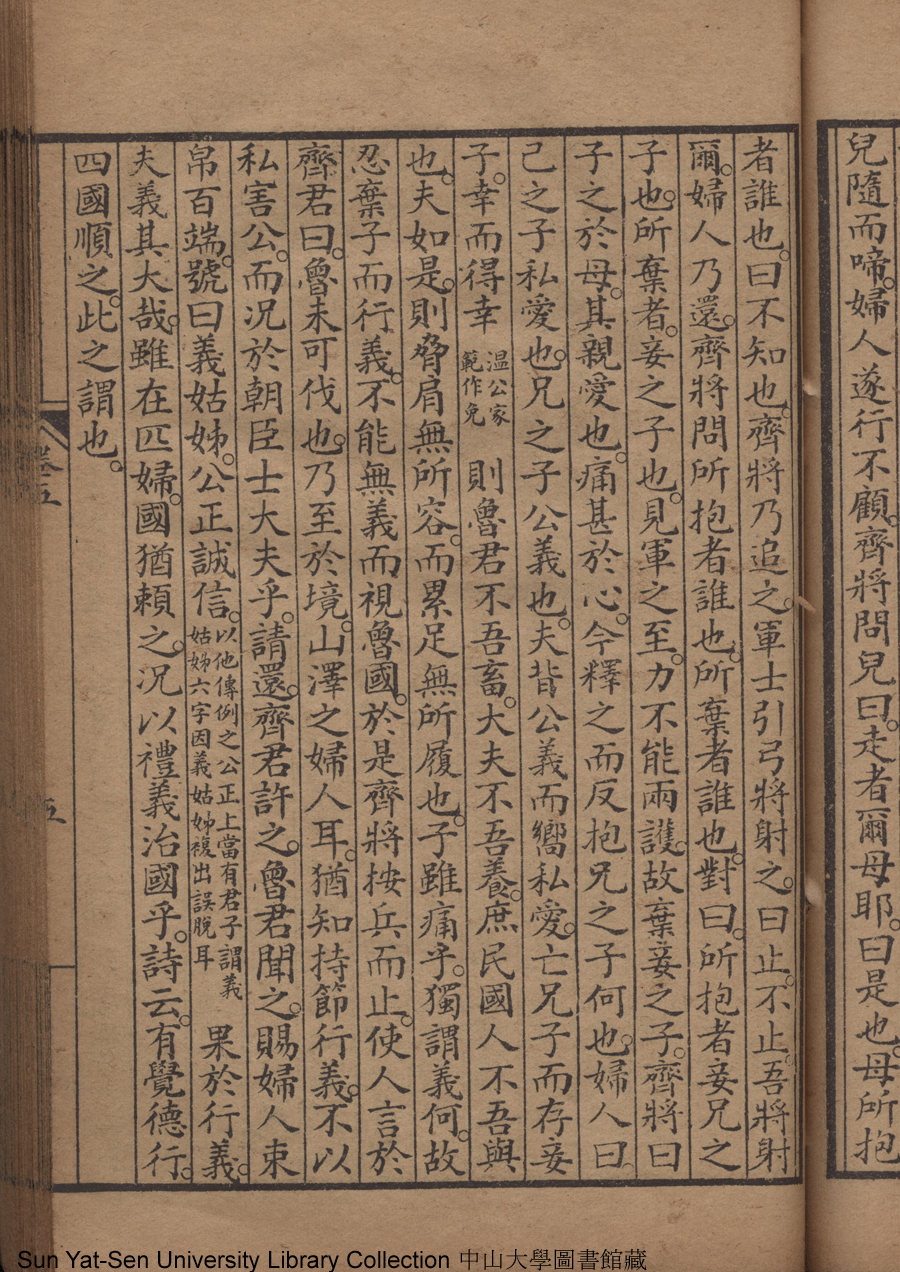 兒隨而啼。婦人遂行不顧。齊將問兒曰。走者爾母耶。曰是也。母所抱
者誰也。曰不知也。齊將乃追之。軍士引弓將射之。曰止。不止。吾將射
爾。婦人乃還。齊將問所抱者誰也。所棄者誰也。對曰。所抱者妾兄之
子也。所棄者。妾之子也。見軍之至。力不能兩護。故棄妾之子。齊將曰
子之於母。其親愛也。痛甚於心。今釋之而反抱兄之子何也。婦人曰
己之子私愛也。兄之子公義也。夫背公義而嚮私愛。亡兄子而存妾
子。幸而得幸 温公家範作免 則魯君不吾畜。大夫不吾養。庶民國人不吾與
也。夫如是。則脅肩無所容。而累足無所履也。子雖痛乎。獨謂義何。故
忍棄子而行義。不能無義而視魯國。於是齊將按兵而止。使人言於
齊君曰。魯未可伐也。乃至於境。山澤之婦人耳。猶知持節行義。不以
私害公。而况於朝臣士大夫乎。請還。齊君許之。魯君聞之。賜婦人束
帛百端。號曰義姑姊。公正誠信。以他傳例之公正上當有君子謂義姑姊六字因義姑姊複出誤脫耳 果於行義。
夫義其大哉。雖在匹婦。國猶賴之。况以禮義治國乎。詩云。有覺德行。
四國順之。此之謂也。
卷五
五
Sun Yat-Sen University Library Collection 中山大學圖書館藏